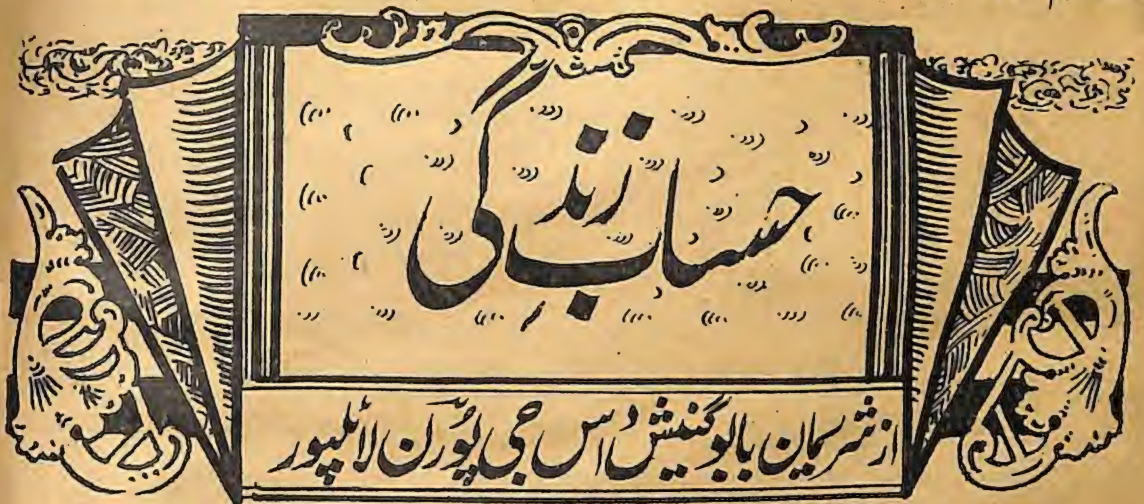 حساب زندگی
از شریمان بابو گنیش داس جی پُورن لائلپور